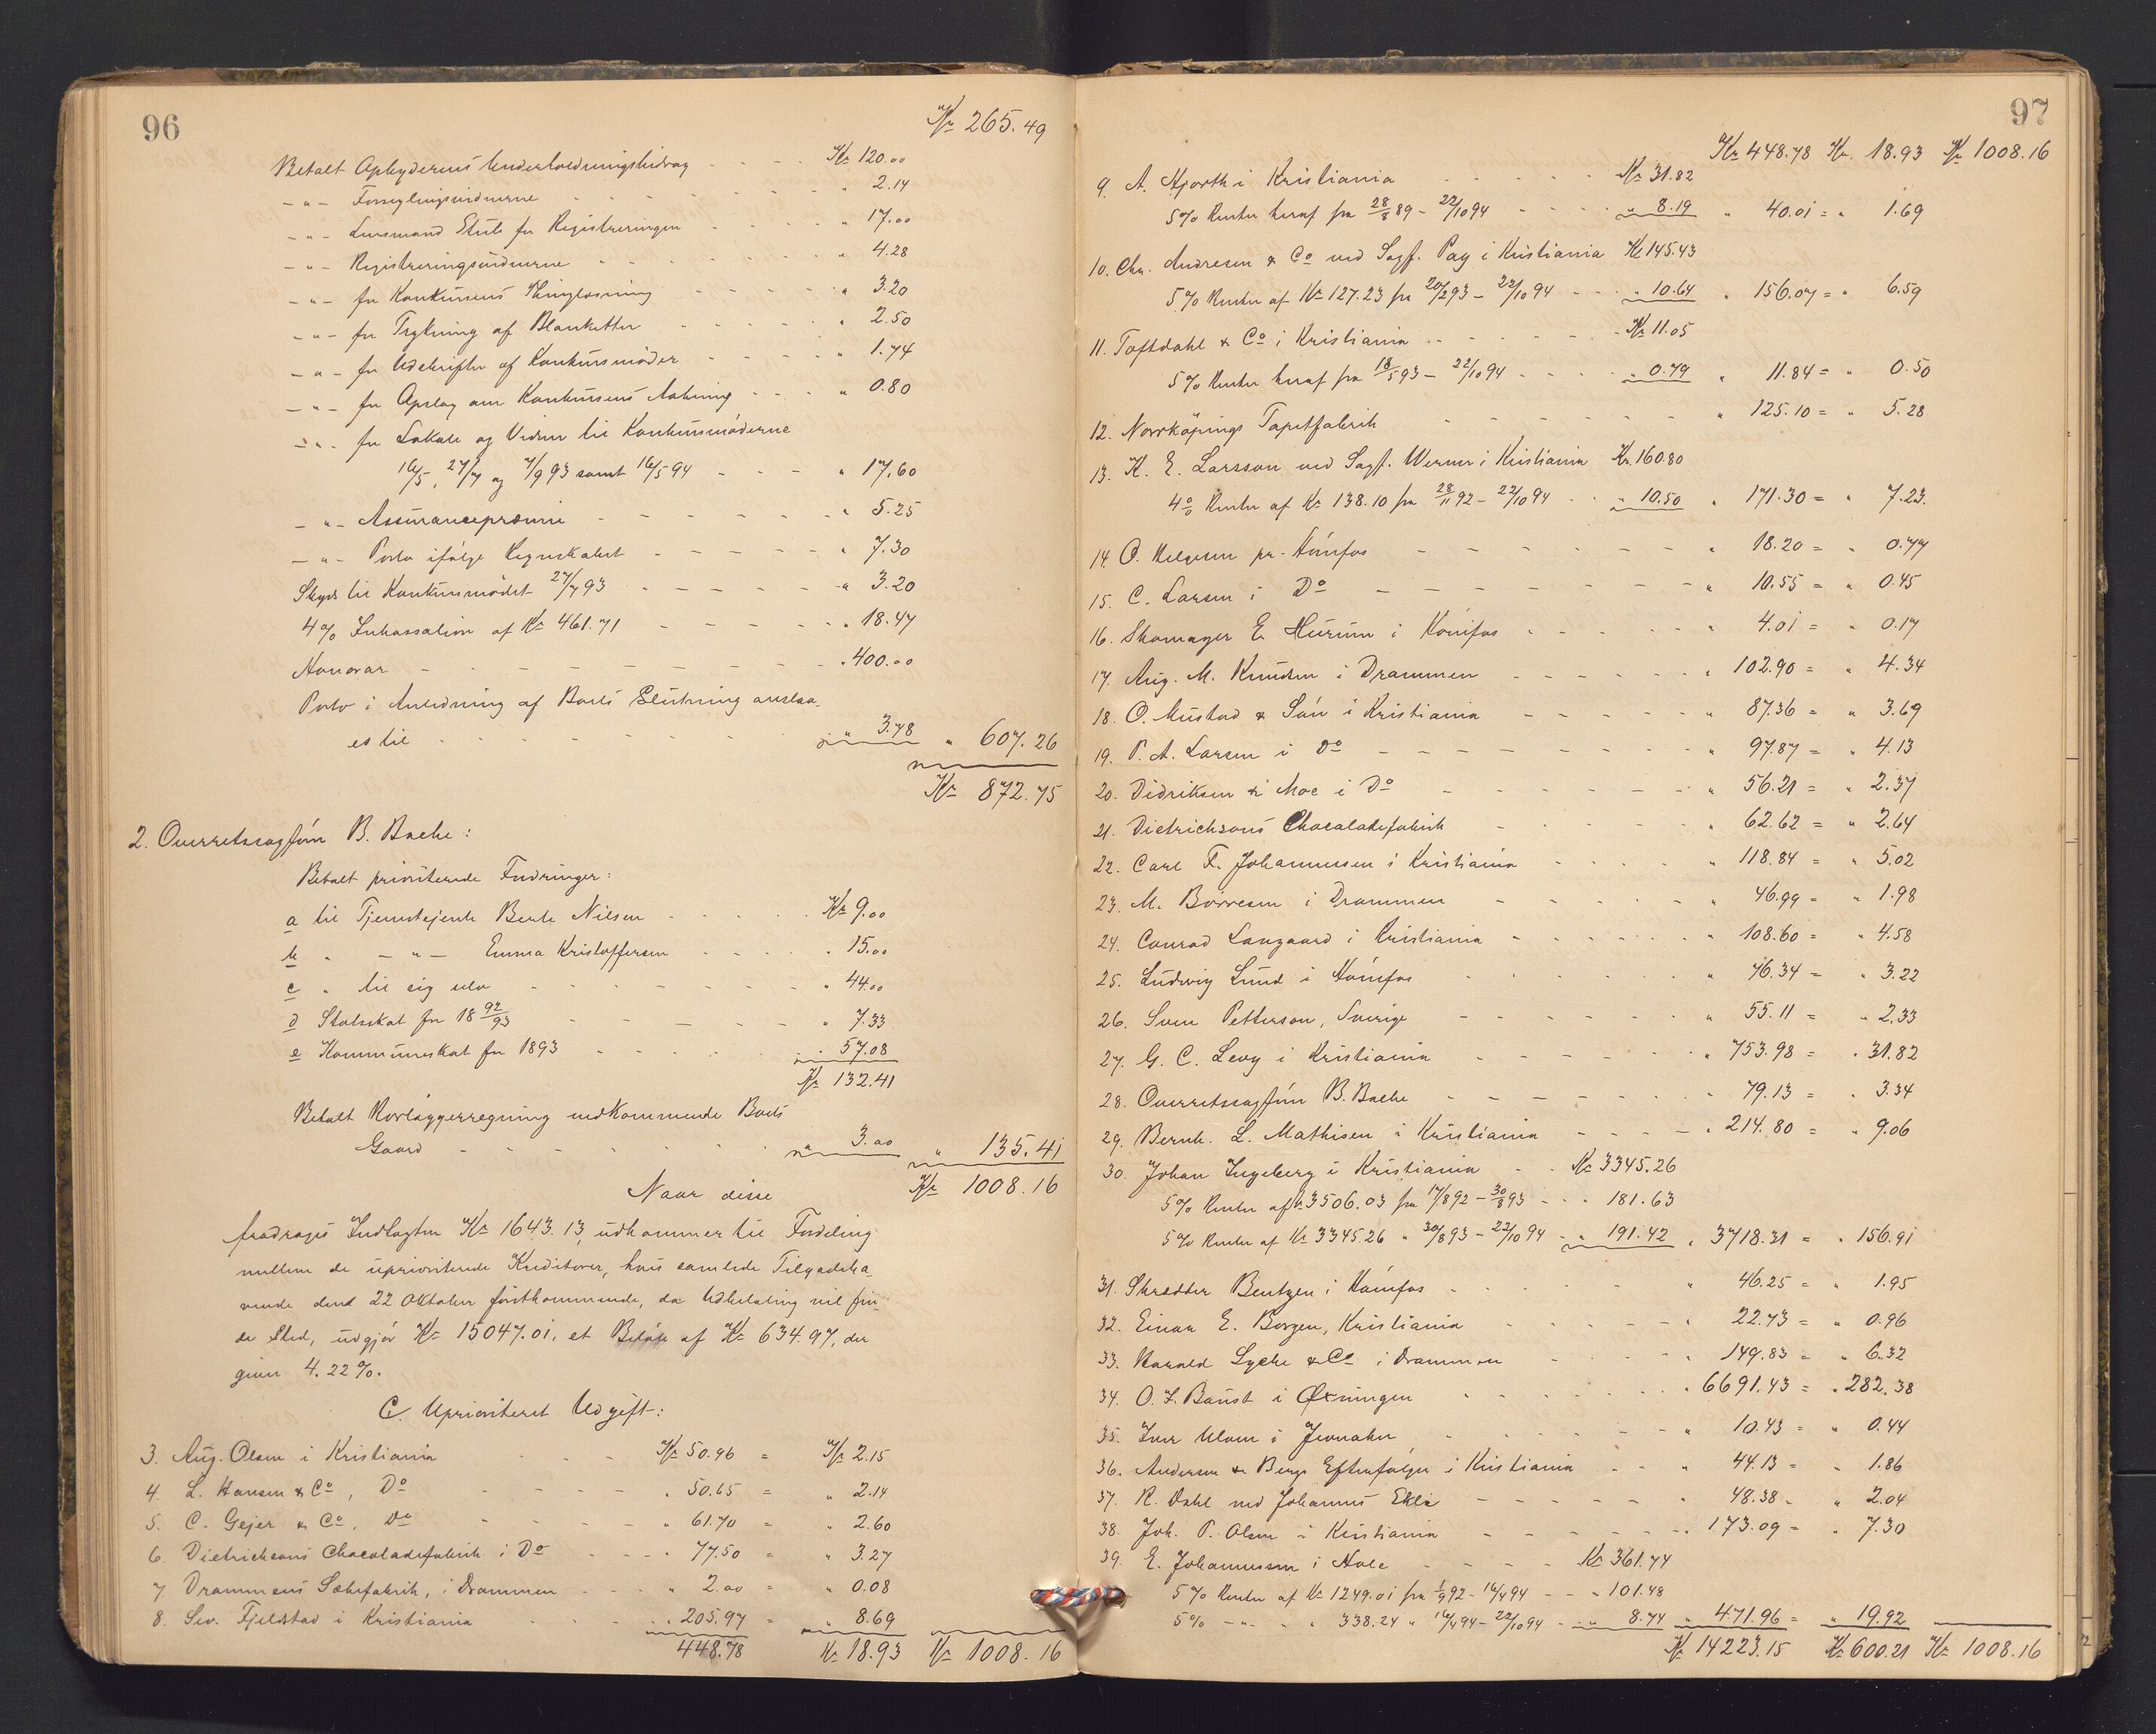 96
Kr 265.49
Betalt Opbyderens Underholdningsbidrag - - - - Kr 120.00
- " - Forseglingsvidnerne - - - " 2.14
- " - Lensmand for Registreringen - - - " 17.00
- " - Registreringsvidnerne - - - " 4.28
- " - for Konkursens Thinglæsning - - - " 3.20
- " - for Trykning af Blanketter - - - " 2.50
- " - for Udskrifter af Konkursmøder - - - " 1.74
- " - for Opslag om Konkursens - - - " 0.80
- " - for Lokale og Vidner til Konkursmøderne
16/5, 27/7 og 7/9 93 samt 16/5 94 - - - " 17.60
- " - Assurancepræmie - - - " 5.25
- " - Porto ifølge Regnskabet - - - " 7.30
Skyds til Konkursmødet 27/7 93 - - - " 3.20
4% Inkassation af Kr 461.71 - - - " 18.47
Honorar - - - " 400.00
Porto i Anledning af Boets Slutning anslaa-
es til - - - " 3.78 " 607.26
Kr 872.75
2. Overretssagfører B. Bache:
Betalt prioriterede Fordringer:
a til Tjenestejente Berte Nilsen - - - Kr 9.00
b " - " - Emma Kristoffersen - - - " 15.00
c " til sig selv - - - " 44.00
d Statsskat for 18 92/93 - - - " 7.33
e Kommuneskat for 1893 - - - " 57.08
Kr 132.41
Betalt Rørlæggerregning vedkommende Boets
Gaard - - - " 3.00 " 135.41
Kr 1008.16
Naar disse
fradrages Indtægten Kr 1643.13, udkommer til Fordeling
mellem de uprioriterede Kreditorer, hvis samlede Tilgodeha-
vende den 22 Oktober førstkommende, da Udbetaling vil fin-
de Sted, udgjør Kr 15047.01, et Beløb af Kr 634.97, der
giver 4.22%.
C. Uprioriteret Udgift:
3. Aug. Olsen i Kristiania - - - Kr 50.96 = Kr 2.15
4. L. Hansen & Co, Do - - - " 50.65 = " 2.14
5. C. Gejer & Co, Do - - - " 61.70 = " 2.60
6. Dietrichsons Chocoladefabrik i Do - - - " 77.50 = " 3.27
7. Drammens Sæbefabrik, i Drammen - - - " 2.00 = " 0.08
8. Sev. Fjeldstad i Kristiania - - - " 205.97 = " 8.69
448.78 Kr 18.93 Kr 1008.16
97
Kr 448.78 Kr. 18.93 Kr 1008.16
9. A. Hjorth i Kristiania - - - Kr 31.82
5% Renter heraf fra 28/8 89 - 22/10 94 - - - " 8.19 " 40.01 = " 1.69
10. Chr. Andresen & Co ved Sagf. Pay i Kristiania Kr 145.43
5% Renter af Kr 127.23 fra 20/2 93 - 22/10 94 - - - " 10.64 " 156.07 = " 6.59
11. Toftdahl & Co i Kristiania - - - Kr 11.05
5% Renter heraf fra 18/5 93 - 22/10 94 - - - " 0.79 " 11.84 = " 0.50
12. Norrköpings Tapetfabrik - - - " 125.10 = " 5.28
13. K. E. Larsson ved Sagf. Werner i Kristiania Kr. 160.80
4% Renter af Kr 138.10 fra 28/11 92 - 22/10 94 - - " 10.50 " 171.30 = " 7.23.
14. O. Helgesen pr. Hönefos - - - " 18.20 = " 0.77
15. C. Larsen i Do - - - " 10.55 = " 0.45
16. Skomager E. Hurum i Hönefos - - - " 4.01 = " 0.17
17. Aug. M. Knudsen i Drammen - - - " 102.90 = " 4.34
18. O. Mustad & Søn i Kristiania - - - " 87.36 = " 3.69
19. P. A. Larsen i Do - - - " 97.87 = " 4.13
20. Didriksen & Moe i Do - - - " 56.21 = " 2.37
21. Dietrichsons Chocoladefabrik - - - " 62.62 = " 2.64
22. Carl F. Johannesen i Kristiania - - - " 118.84 = " 5.02
23. M. Börresen i Drammen - - - " 46.99 = " 1.98
24. Conrad Langaard i Kristiania - - - " 108.60 = " 4.58
25. Ludvig Lund i Hönefos - - - " 76.34 = " 3.22
26. Sven Petterson, Sverige - - - " 55.11 = " 2.33
27. G. C. Levy i Kristiania - - - " 753.98 = " 31.82
28. Overretssagfører B. Bache - - - " 79.13 = " 3.34
29. Bernh. L. Mathisen i Kristiania - - - " 214.80 = " 9.06
30. Johan Ingeberg i Kristiania - - Kr 3345.26
5% Renter af Kr 3506.03 fra 17/8 92 - 30/8 93 - - - 181.63
5% Renter af Kr 3345.26 " 30/8 93 - 22/10 94 - " 191.42 " 3718.31 = " 156.91
31. Skrædder Bentzen i Hönefos - - - " 46.25 = " 1.95
32. Einar E. Borgen, Kristiania - - - " 22.73 = " 0.96
33. Harald Lyche & Co i Drammen - - - " 149.83 = " 6.32
34. O. J. Baust i - - - " 6691.43 = " 282.38
35. Iver i Jevnaker - - - " 10.43 = " 0.44
36. Andersen & Bergs Efterfølger i Kristiania - - " 44.13 = " 1.86
37. R. Dahl ved Johannes - - - " 48.38 = " 2.04
38. Joh. P. Olsen i Kristiania - - - " 173.09 = " 7.30
39. E. Johannesen i Hole - - - Kr 361.74
5% Renter af Kr 1249.01 fra 1/9 92 - 16/4 94 - - " 101.48
5% - " - " " 338.24 " 16/4 94 - 22/10 94 - " 8.74 " 471.96 = " 19.92
Kr 14223.15 Kr 600.21 Kr 1008.16